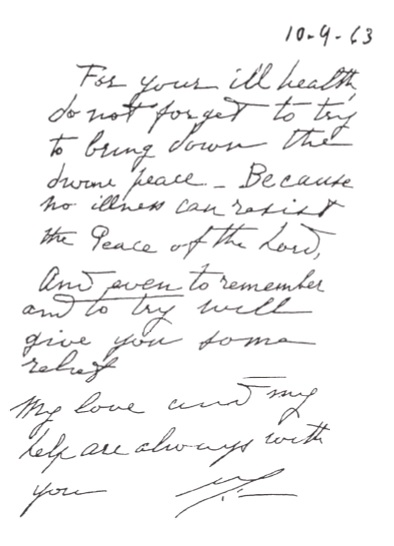 10-9-63
For your ill health,
do not forget to try
to bring down the
divine peace - Because
no illness can resist
the Peace of the Lord,
And even to remember
and to try will
give you some
relief
My love and my
help are always with
you